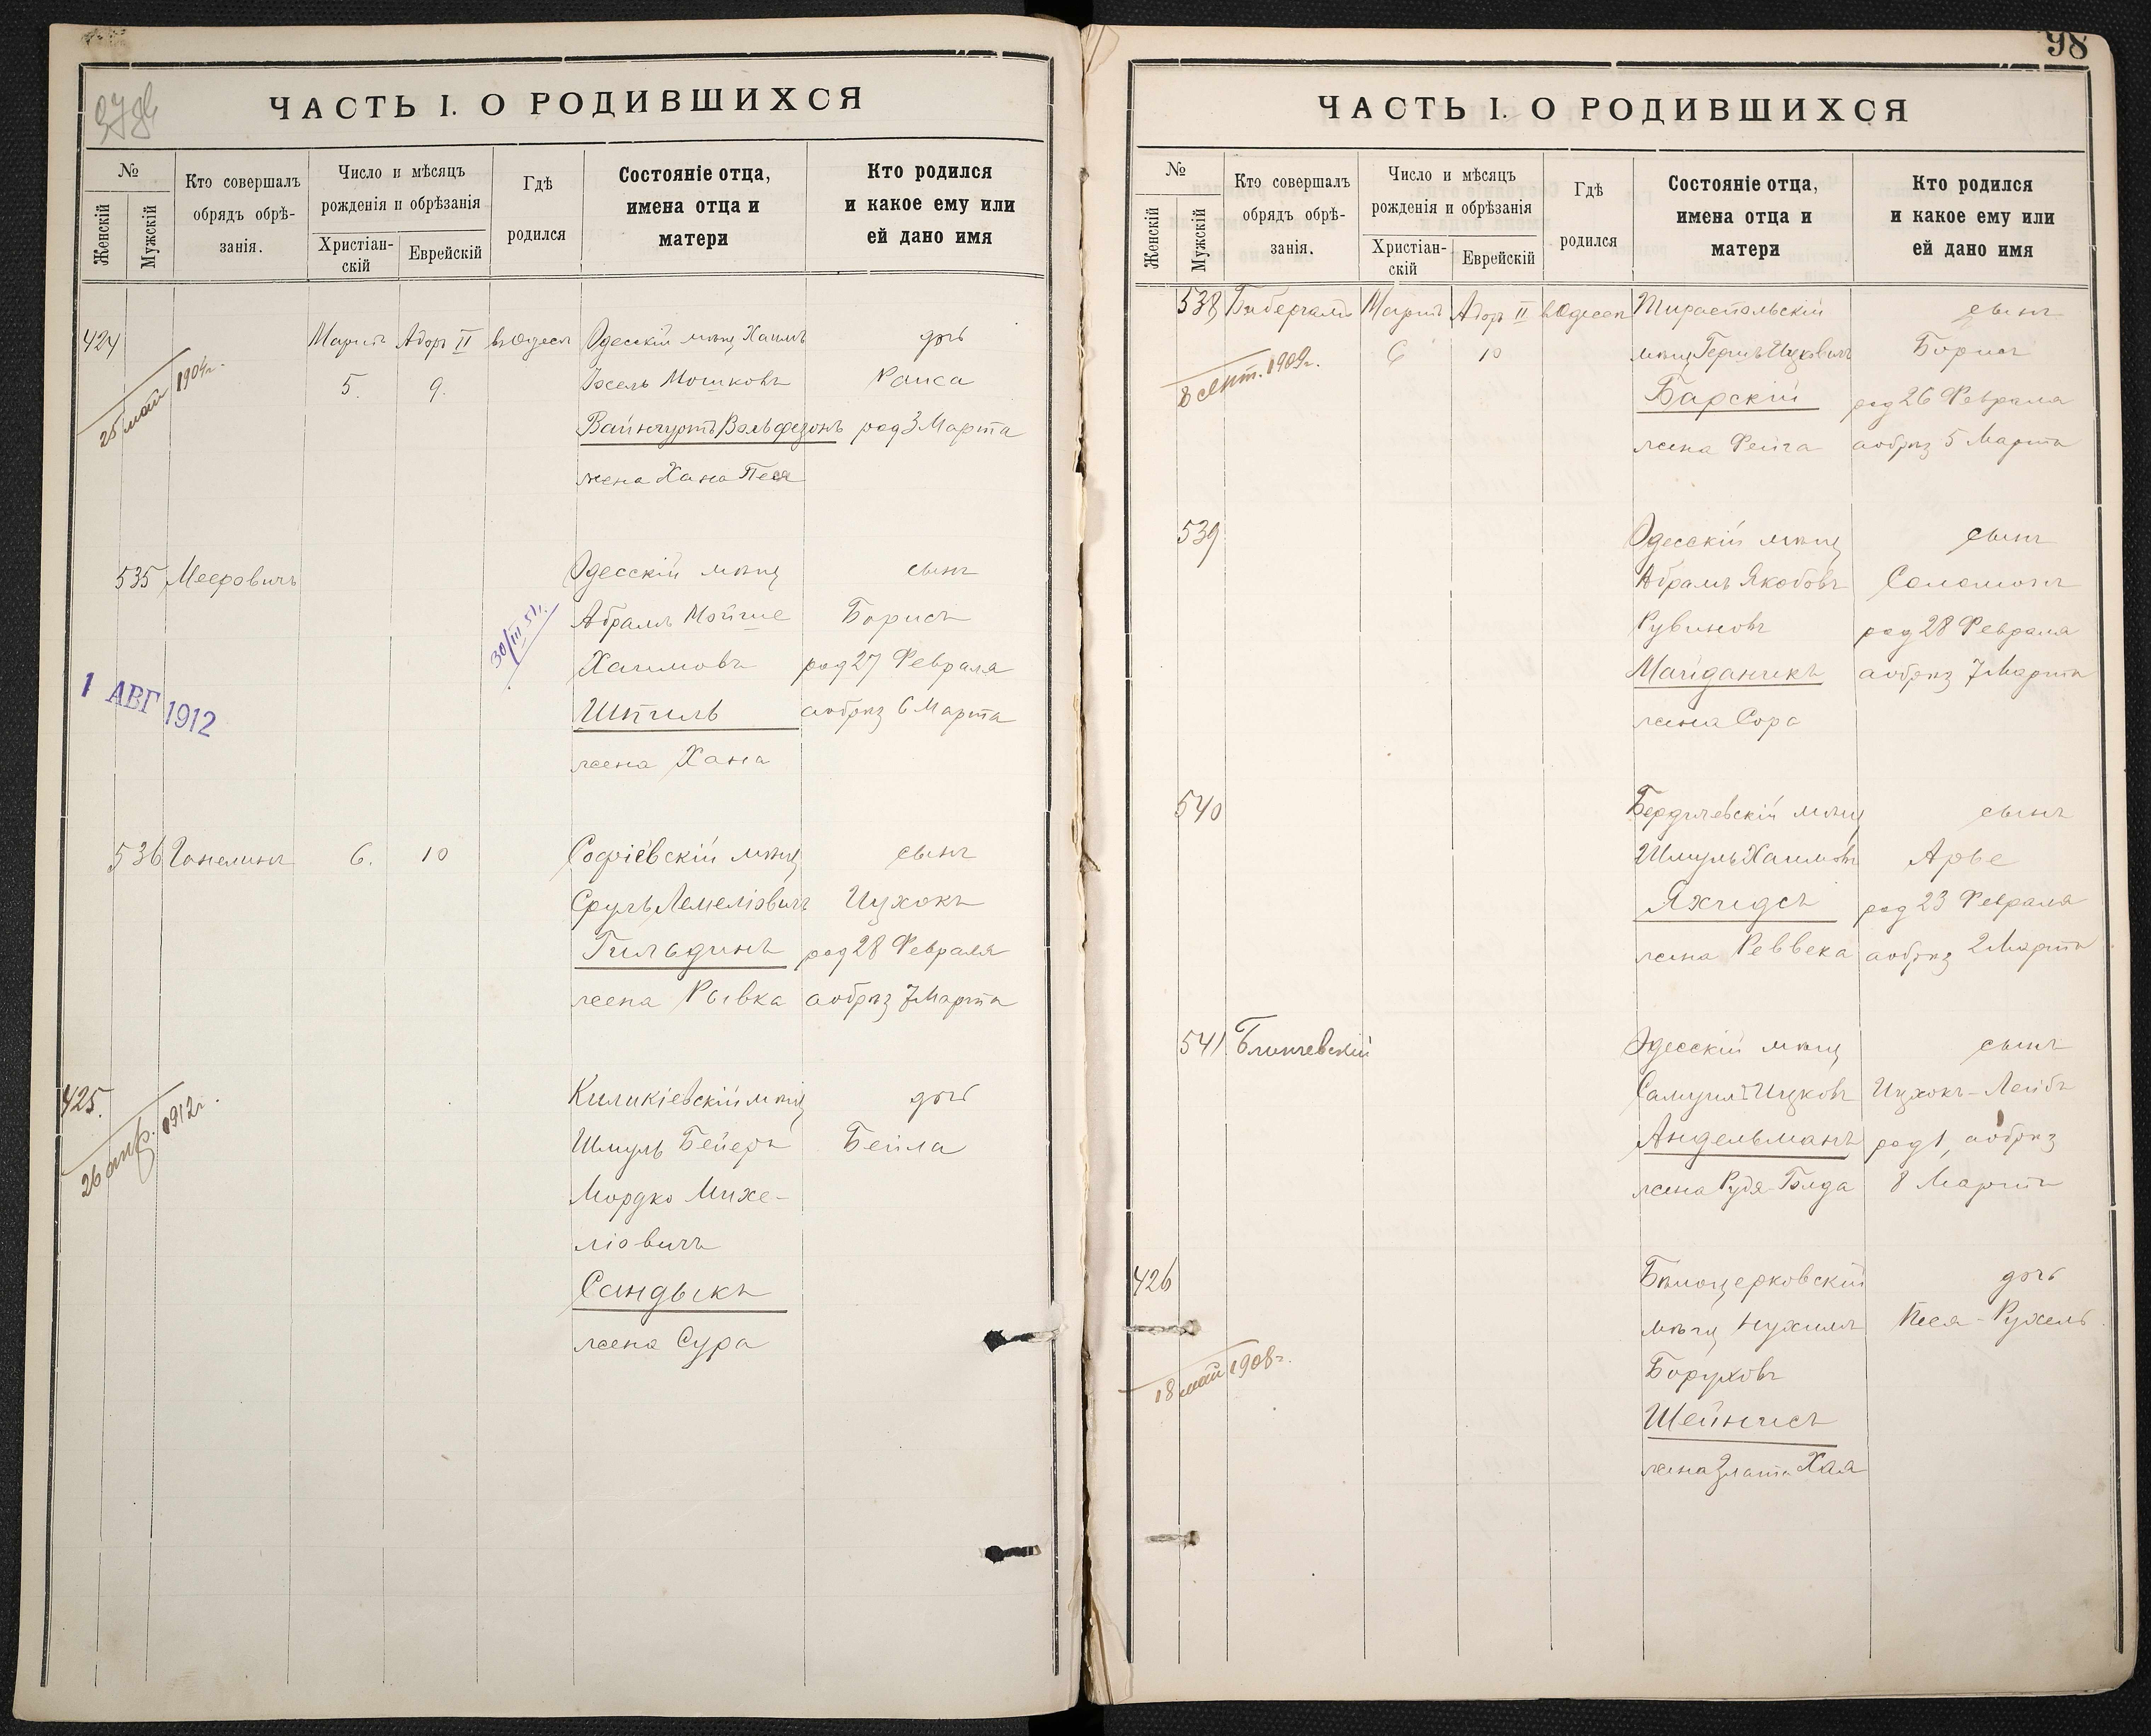 ЧАСТЬ I. О РОДИВШИХСЯ
№
Женскій
Мужскій
Кто совершалъ
обрядъ обрѣ-
занія.
Число и мѣсяцъ
рожденія и обрѣзанія
Христіан-
скій
Еврейскій
Гдѣ
родился
Состояніе отца,
имена отца и
матери
Кто родился
и какое ему или
ей дано имя
424 Мартъ Адоръ II въ Одессѣ Одесскій мѣщ Хаимъ дочь
5. 9. Іосель Мошковъ Раиса
Вайнгуртъ Вольфзонъ род 3 Марта
жена Хана Песя
25 мая
535 Мееровичъ Одесскій мѣщ сынъ
Абрамъ Мойше Борисъ
30/III 51.
Хаимовъ род 27 Февраля
Шпиль а обрѣз 6 Марта
жена Хана
1 АВГ 1912
536 6. 10 Софіевскій мѣщ сынъ
Сруль Лемеліовичъ Ицхокъ
Гильдинъ род 28 Февраля
жена Рывка а обрѣз 7 Марта
425. Киликіевскій мѣщ дочь
Шмуль Бейеръ Бейла
Мордко Михе-
ліовичъ
Сандыкъ
жена Сура
26 апр. 1912г.
98
ЧАСТЬ I. О РОДИВШИХСЯ
№
Женскій
Мужскій
Кто совершалъ
обрядъ обрѣ-
занія.
Число и мѣсяцъ
рожденія и обрѣзанія
Христіан-
скій
Еврейскій
Гдѣ
родился
Состояніе отца,
имена отца и
матери
Кто родился
и какое ему или
ей дано имя
538 Бибергалъ Мартъ Адоръ II въ Одессѣ Тираспольскій сынъ
6 10 мѣщ Гершъ Ицковичъ Борисъ
Барскій род 26 Февраля
жена Фейга а обрѣз 5 Марта
8 сент. 1909г.
539 Одесскій мѣщ сынъ
Абрамъ Якобовъ Соломонъ
Рувиновъ род 28 Февраля
Майданикъ а обрѣз 7 Марта
жена Сора
540 Бердичевскій мѣщ сынъ
Шмуль Хаимовъ Арье
Яхидсъ род 23 Февраля
жена Реввека а обрѣз 2 Марта
541 Блинчевскій Одесскій мѣщ сынъ
Самуилъ Ицковъ Ицхокъ-Лейбъ
Андельманъ род 1, а обрѣз
жена Рудя-Голда 8 Марта
426 Бѣлоцерковскій дочь
мѣщ Нухимъ Песя-Рухель
Боруховъ
Шейнисъ
жена Злата Хая
18 мая 1908г.